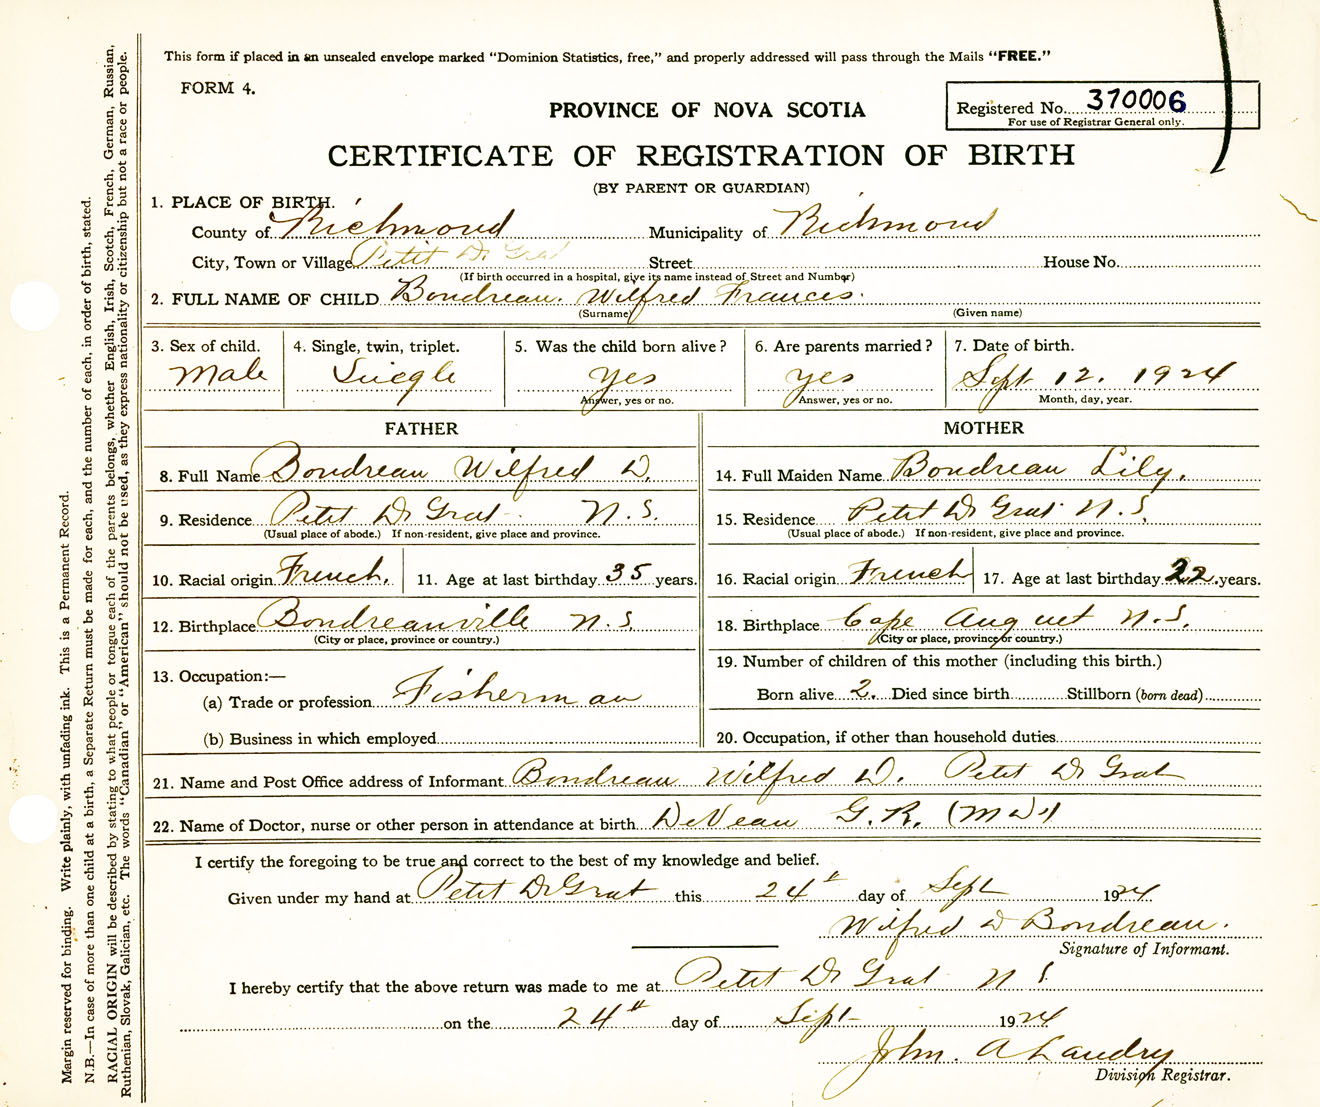 This form if placed in an unsealed envelope marked "Dominion Statistics, free," and properly addressed will pass through the Mails "FREE."
FORM 4.
Registered No. 370006
For use of Registrar General only.
PROVINCE OF NOVA SCOTIA
CERTIFICATE OF REGISTRATION OF BIRTH
(BY PARENT OR GUARDIAN)
1. PLACE OF BIRTH.
County of Richmond Municipality of Richmond
City, Town or Village Petit De Grat Street House No.
(If birth occurred in a hospital, give its name instead of Street and Number)
2. FULL NAME OF CHILD Boudreau. Wilfred Frances.
(Surname) (Given name)
3. Sex of child. 4. Single, twin, triplet. 5. Was the child born alive? 6. Are parents married? 7. Date of birth.
Male Single yes yes Sept 12. 1924
Answer, yes or no. Answer, yes or no. Month, day, year.
FATHER MOTHER
8. Full Name Boudreau Wilfred D. 14. Full Maiden Name Boudreau Lily.
9. Residence Petit De Grat N.S. 15. Residence Petit De Grat N.S.
(Usual place of abode.) If non-resident, give place and province. (Usual place of abode.) If non-resident, give place and province.
10. Racial origin French. 11. Age at last birthday 35 years. 16. Racial origin French 17. Age at last birthday 22 years.
12. Birthplace Boudreauville N.S. 18. Birthplace Cape Auguet N.S.
(City or place, province or country.) (City or place, province or country.)
13. Occupation:— 19. Number of children of this mother (including this birth.)
(a) Trade or profession Fisherman Born alive 2. Died since birth Stillborn (born dead)
(b) Business in which employed 20. Occupation, if other than household duties
21. Name and Post Office address of Informant Boudreau Wilfred D. Petit De Grat
22. Name of Doctor, nurse or other person in attendance at birth DeVeau G.R. (M D)
I certify the foregoing to be true and correct to the best of my knowledge and belief.
Given under my hand at Petit De Grat this 24th day of Sept 1924
Wilfred D Boudreau.
Signature of Informant.
I hereby certify that the above return was made to me at Petit De Grat N S
on the 24th day of Sept 1924
John. A Landry
Division Registrar.
Margin reserved for binding. Write plainly, with unfading ink. This is a Permanent Record.
N.B.—In case of more than one child at a birth, a Separate Return must be made for each, and the number of each, in order of birth, stated.
RACIAL ORIGIN will be described by stating to what people or tongue each of the parents belongs, whether English, Irish, Scotch, French, German, Russian,
Ruthenian, Slovak, Galician, etc. The words "Canadian" or "American" should not be used, as they express nationality or citizenship but not a race or people.